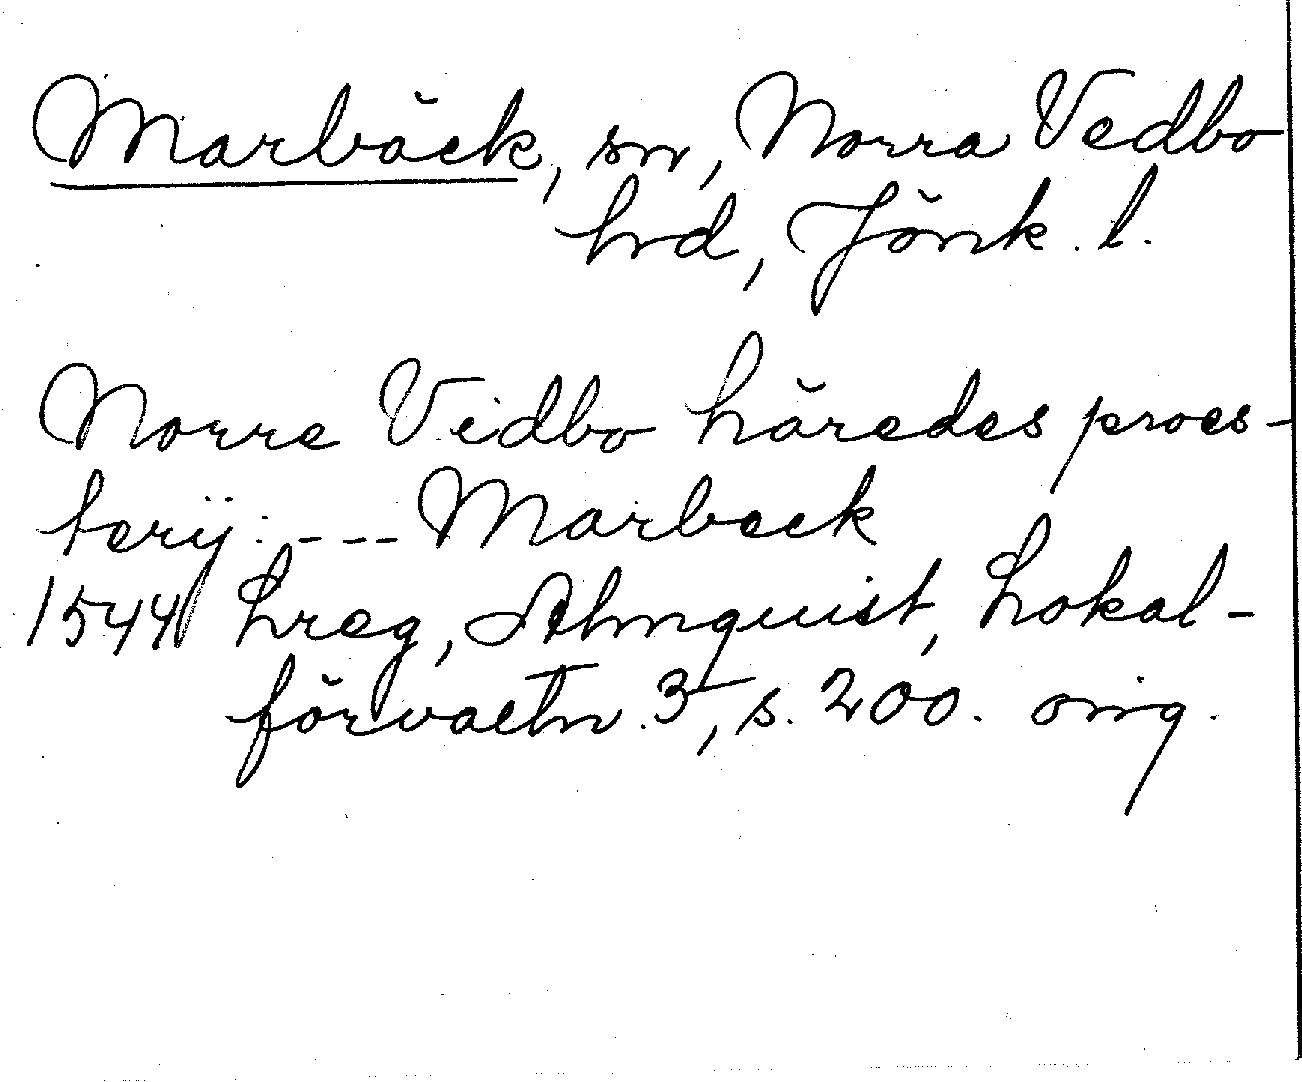 Marbäck, sn, Norra Vedbo
hrd, Jönk. l.
Norre Vidbo häredes proes-
terij: --- Marbeck
1544 Lreg, Almquist, Lokal-
förvaltn. 3, s. 200. orig.